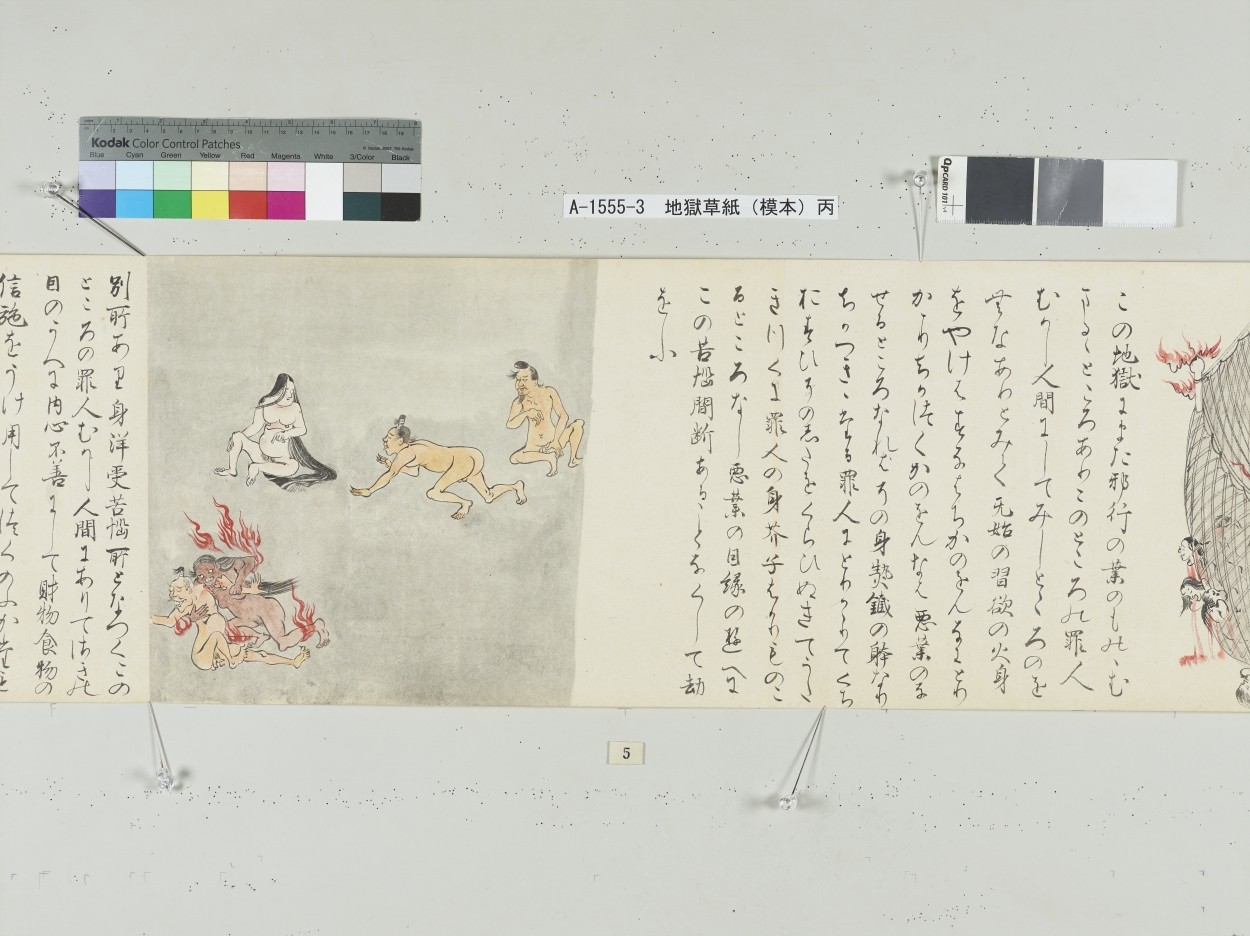 Kodak Color Control Patches
Blue Cyan Green Yellow Red Magenta White 3/Color Black
A-1555-3 地獄草紙（模本）丙
QPCARD 101
この地獄にまた邪行の業のものこむ
まるゝところありこのところの罪人
むかし人間にしてみしところのを
むなありとみて无始の習欲の火身
をやけはすなはちかのをんなにとり
かゝりちかつくかのをんなは悪業のな
せるところなれはその身熱鐵の躰なり
ちかつきよる罪人にとりかゝりてくち
くらひぬきて
罪人の身芥子はかりものこ
るところなし悪業の因縁の
この苦悩間断あることなくして劫
をふ
別所あり身洋受苦悩所となつくこの
ところの罪人むかし人間にありて
目のうへに内心不善にして財物食物の
信施をうけ用して
5